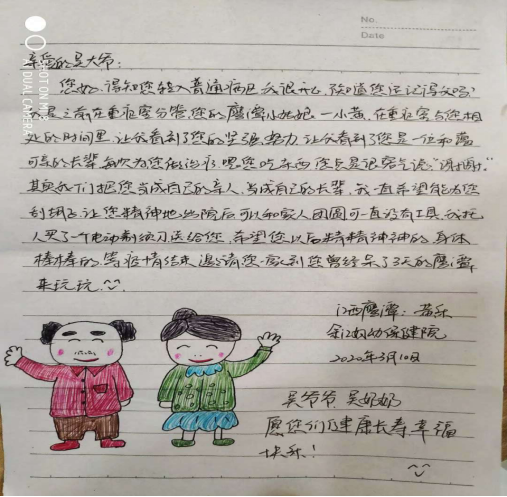 No.
Date
SHOT ON MI
AI DUAL CAMERA
亲爱的吴大爷:
您好,得知您转入普通病区我很开心,不知道您还记得我吗?
我是之前在重症室分管您的鹰潭小姑娘一小黄,在重症室与您相
处的时间里,让我看到了您的坚强,努力,让我看到了您是一位和蔼
可亲的长辈,每次为您做治疗、喂您吃东西,您总是很客气说:"谢谢."
其实我们把您当成自己的亲人,当成自己的长辈,我一直希望能为您
刮胡子,让您精神地出院后可以和家人团圆可一直没有工具,我托
人买了一个电动剃须刀送给您,希望您以后精精神神的,身体
棒棒的,等疫情结束邀请您一家到您曾经呆了3天的鹰潭
来玩玩.
江西鹰潭: 黄乐
余江妇幼保健院
2020年3月10日
吴爷爷,吴奶奶
愿您们健康长寿,幸福
快乐!